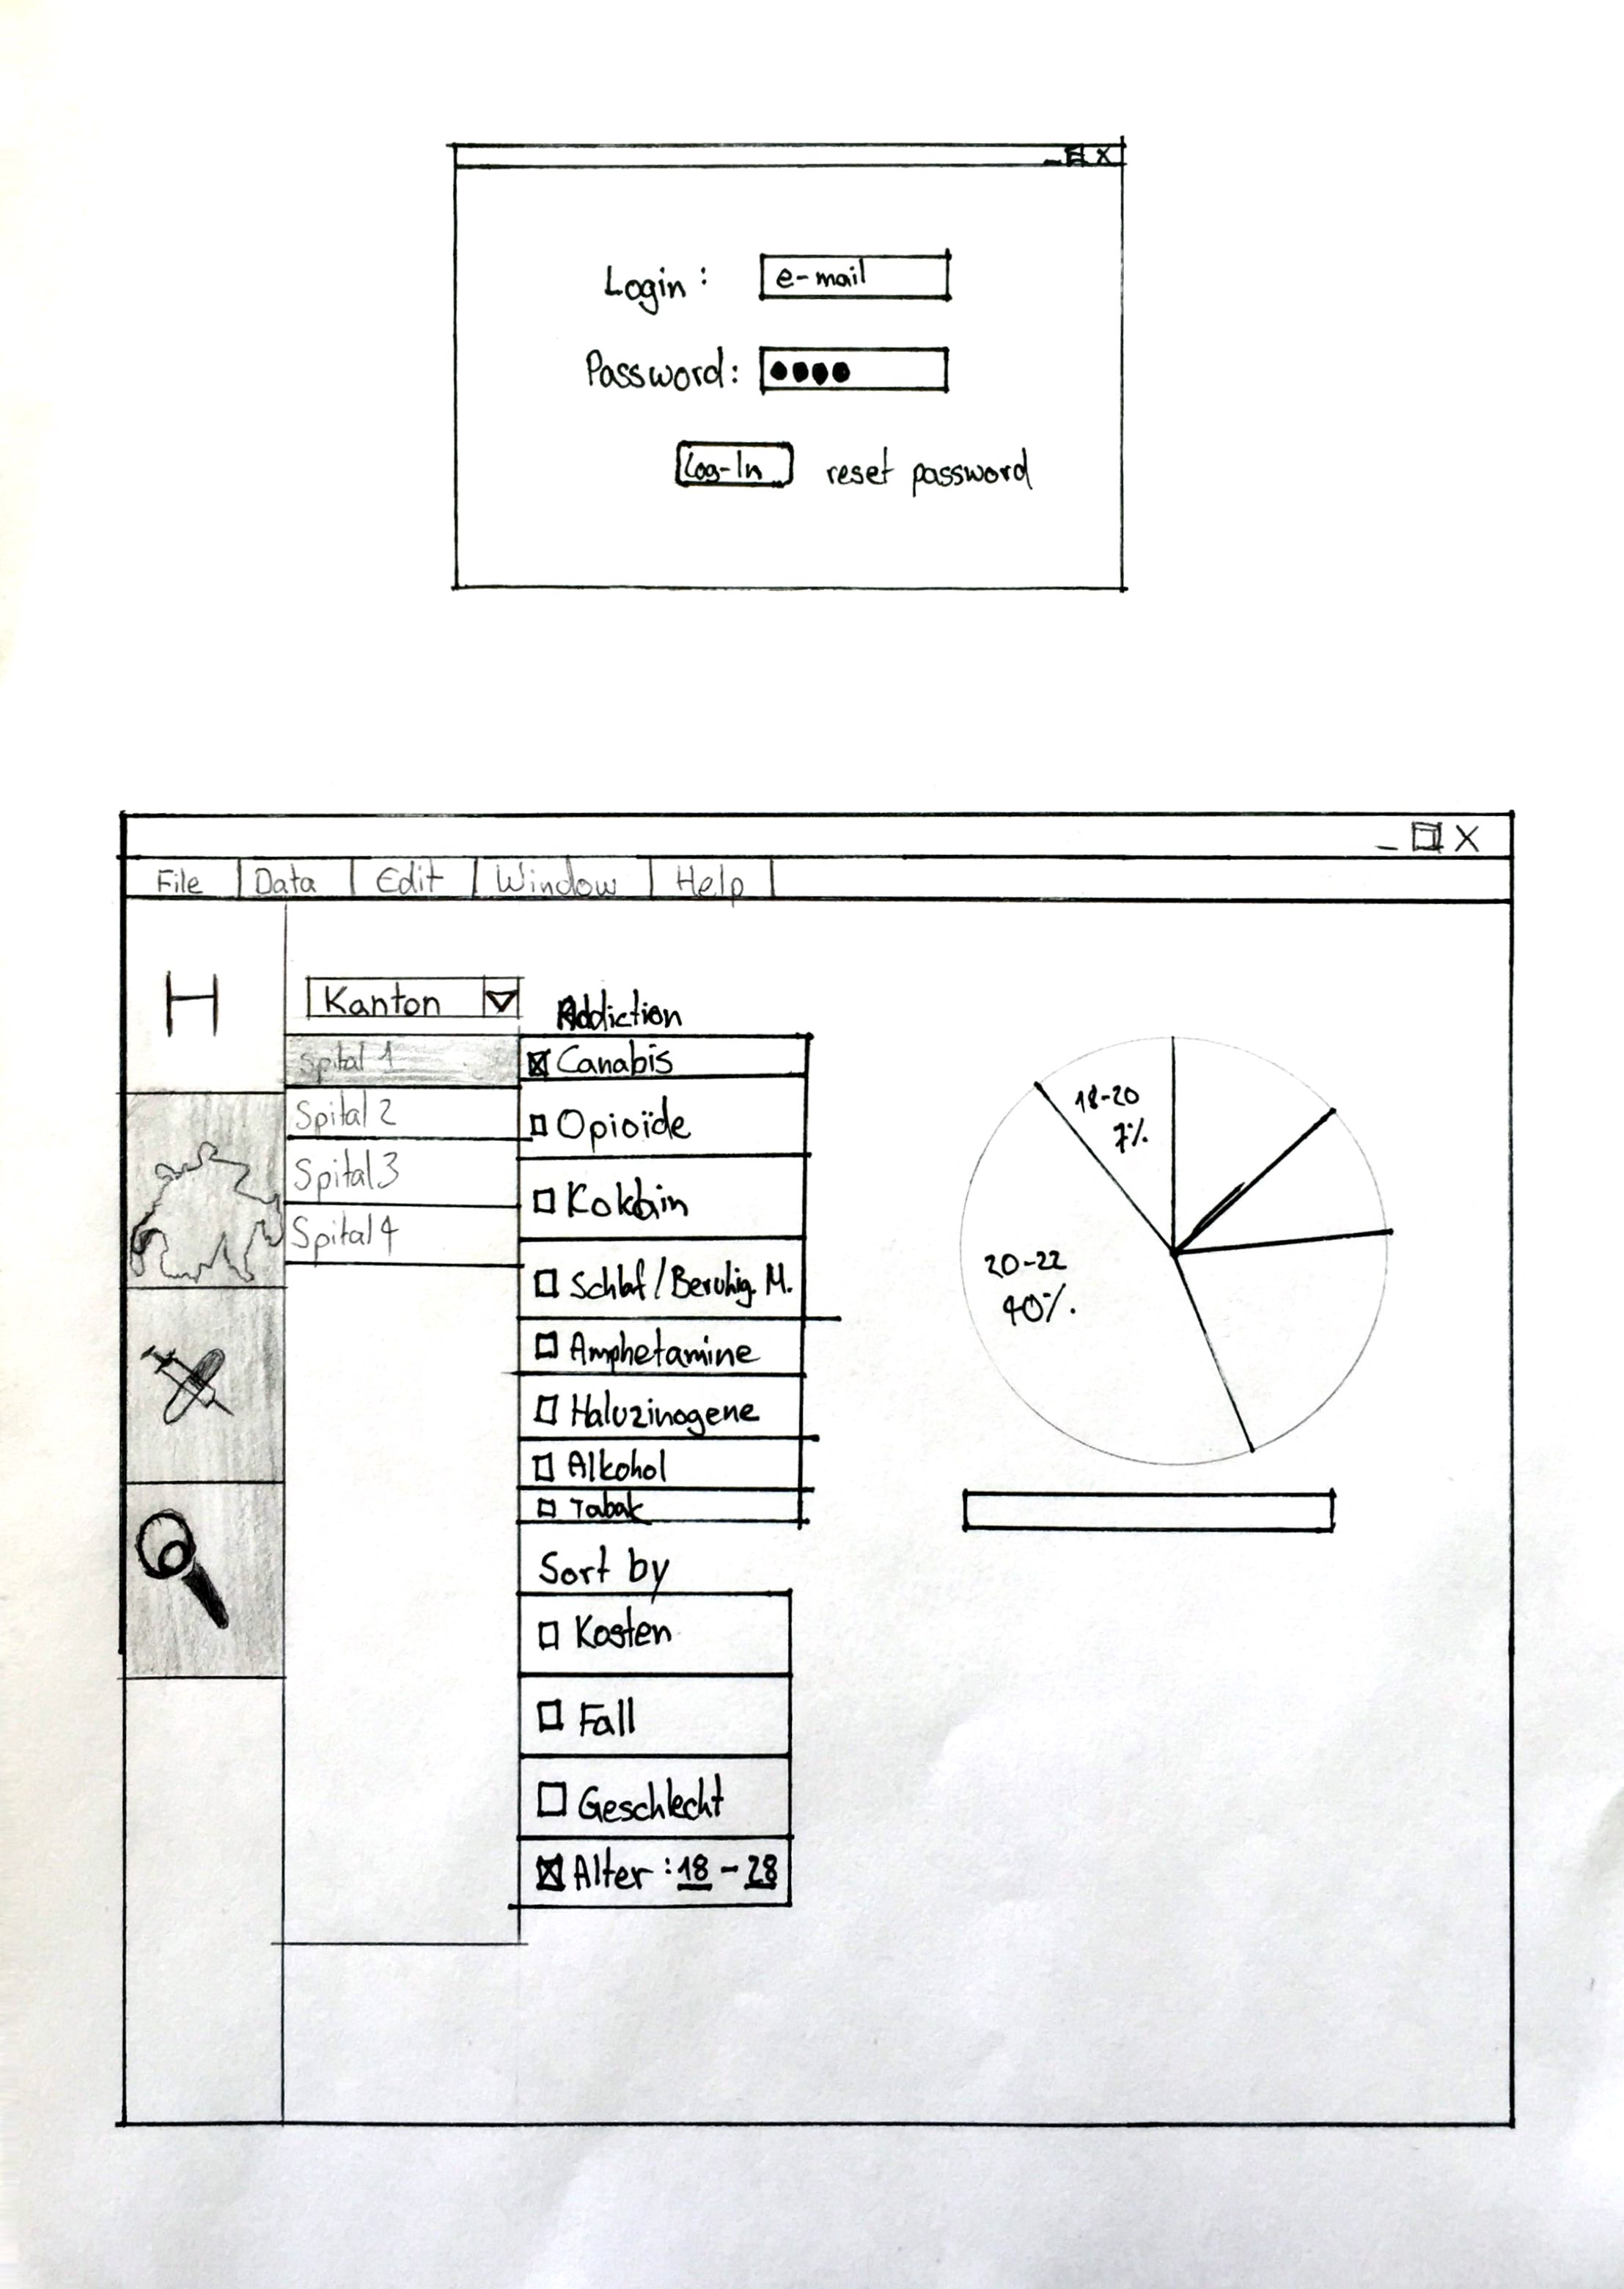 _ X
Login: e-mail
Password: ●●●●
Log-In reset password
_ X
File Data Edit Window Help
H
Kanton
Spital 1
Spital 2
Spital 3
Spital 4
Addiction
Canabis
Opioïde
Kokain
Schlaf/Beruhig. M.
Amphetamine
Haluzinogene
Alkohol
Tabak
Sort by
Kosten
Fall
Geschlecht
Alter: 18 - 28
18-20
7%
20-22
40%